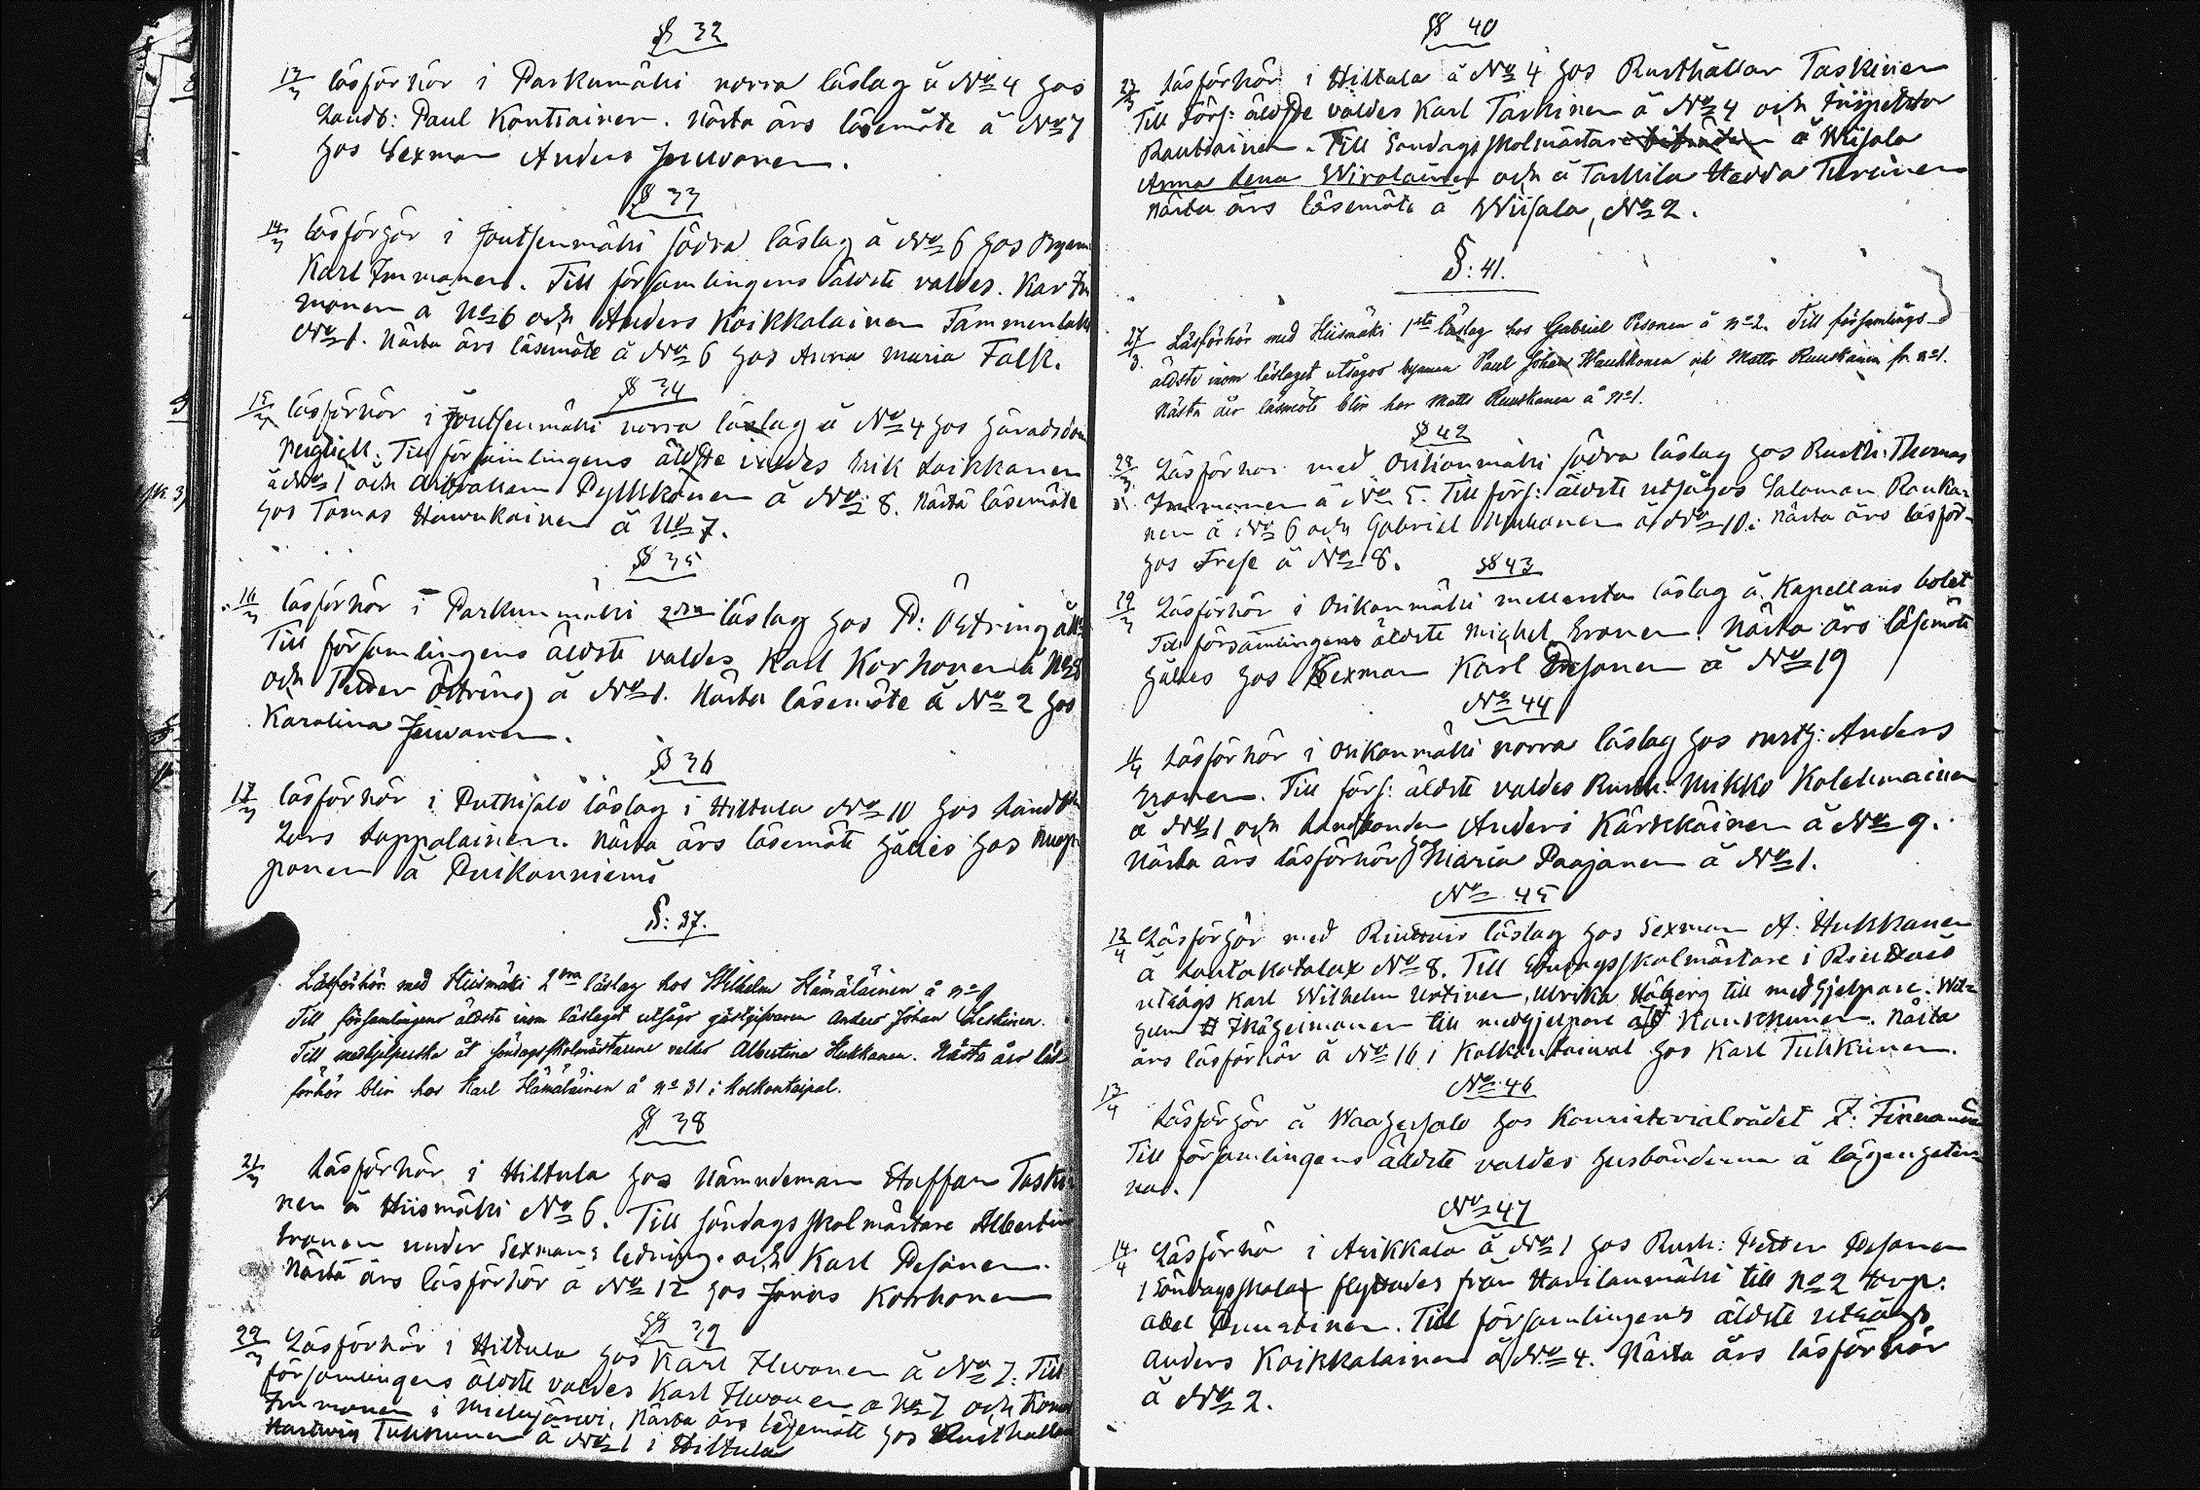 § 32
13/3 Läsförhör i Parkumäki norra läslag å No 4 hos
Landb: Paul Kontiainen. Nästa års läsemöte å No 7
hos Sexman Anders Juuvonen.
§ 33
14/3 Läsförhör i Joutsenmäki södra läslag å No 6 hos Byam
Karl Immonen. Till församlingens äldste valdes Karl Im
monen å No 6 och Anders Koikkalainen Tammenlak
No 1. Nästa års läsemöte å No 6 hos Anna Maria Falk.
§ 34
15/3 Läsförhör i Joutsenmäki norra läslag å No 4 hos Häradsdom
Neiglick. Till församlingens äldste valdes Erik Laikkanen
å No 1 och Abraham Pylkkänen å No 8. Nästa läsemöte
hos Tomas Hawukainen å No 7.
§ 35
16/3 Läsförhör i Parkumäki 2dra läslag hos P: Östring å No
Till församlingens äldste valdes Karl Korhonen å No 8
och Petter Östring å No 1. Nästa läsemöte å No 2 hos
Karolina Juuvonen.
§ 36
17/3 Läsförhör i Putkisalo läslag i Hiltula No 10 hos Landb
Lars Lappalainen. Nästa års läsemöte hålles hos
ponen å Puikonniemi
§: 37.
Läsförhör med Hiismäki 2dra läslag hos Wilhelm Hämäläinen å no 9
Till församlingens äldste inom läslaget utsågs gästgifvaren Anders Johan Leskinen.
Till medhjelperska åt söndagsskolmästarne valdes Albertina Hukkanen. Nästa års läs-
förhör blir hos Karl Hämäläinen å no 31 i Kolkontaipal.
§ 38
21/3 Läsförhör i Hiltula hos Nämndeman Staffan Taski
nen å Hiismäki No 6. Till söndagsskolmästare Albertin
Ironen under Sexmans ledning och Karl Pesonen.
Nästa års läsförhör å No 12 hos Jonas Korhonen
§ 39
22/3 Läsförhör i Hiltula hos Karl Ihvonen å No 7. Till
församlingens äldste valdes Karl Ihvonen å No 7 och
Immonen i . Nästa års läsemöte hos Rusthålla
Hartwig Tukkunen å No 1 i Hiltula
§ 40
23/3 Läsförhör i Hiltula å No 4 hos Rusthållar Taskinen
Till förs: äldste valdes Karl Taskinen å No 4 och Inspektor
Rautiainen. Till Söndagsskolmästare å Wiisala
Anna Lena Wirolainen och å Taskila Hedda Turunen
Nästa års läsemöte å Wiisala, No 2.
§: 41.
27/3. Läsförhör med Hiismäki 1sta läslag hos Gabriel Pesonen å no 2. Till församlings-
äldste inom läslaget utsågos byaman Paul Johan Haukkonen och Matts Ruuskanen fr. no 1.
Nästa års läsmöte blir hos Matts Ruuskanen å no 1.
§ 42
28/3 Läsförhör med Oikonmäki södra läslag hos Rusth: Thomas
Immonen å No 5. Till förs: äldste utsågos Salomon Rauka-
nen å No 6 och Gabriel Muhonen å No 10. Nästa års läsför
hos Frese å No 18.
§ 43
29/3 Läsförhör i Oikonmäki mellersta läslag å Kapellans bolet
Till församlingens äldste Michel Ironen. Nästa års läsemöte
hålles hos Sexman Karl Pesonen å No 19
No 44
11/4 Läsförhör i Oikonmäki norra läslag hos rusth: Anders
Ironen. Till förs: äldste valdes Rusth: Mikko Kolehmainen
å No 1 och Landbonden Anders Kärkkäinen å No 9.
Nästa års läsförhör hos Maria Paajanen å No 1.
No 45
12/4 Läsförhör med läslag hos Sexman A. Hukkanen
å Lautakotalax No 8. Till Söndagsskolmästare i
utsågs Karl Wilhelm Urtinen, Ulrika Höberg till medhjelpare. Wil-
helm Ihägeimonen till medhjelpare åt Kaukkunen. Nästa
års läsförhör å No 16 i Kolkontaival hos Karl Tukkunen.
No 46
13/4
Läsförhör å Waahersalo hos Konsistorialrådet Z:
Till församlingens äldste valdes husbönderna å lägenheter
na.
No 47
14/4 Läsförhör i Arikkala å No 1 hos Rusth: Petter Pesonen
1 Söndagsskolan flyttades från Harilanmäki till No 2 torp:
Abel Puustinen. Till församlingens äldste utsågs
Anders Koikkalainen å No 4. Nästa års läsförhör
å No 2.